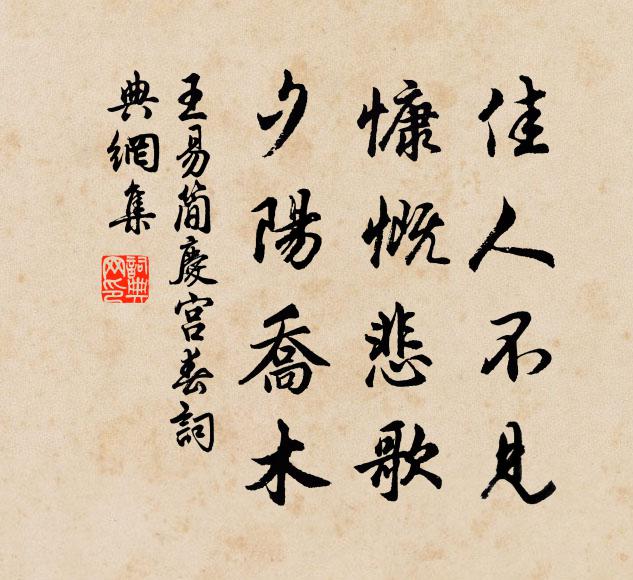 佳人不見
慷慨悲歌
夕陽喬木
王易簡慶宮春詞
典網集
詞典網印